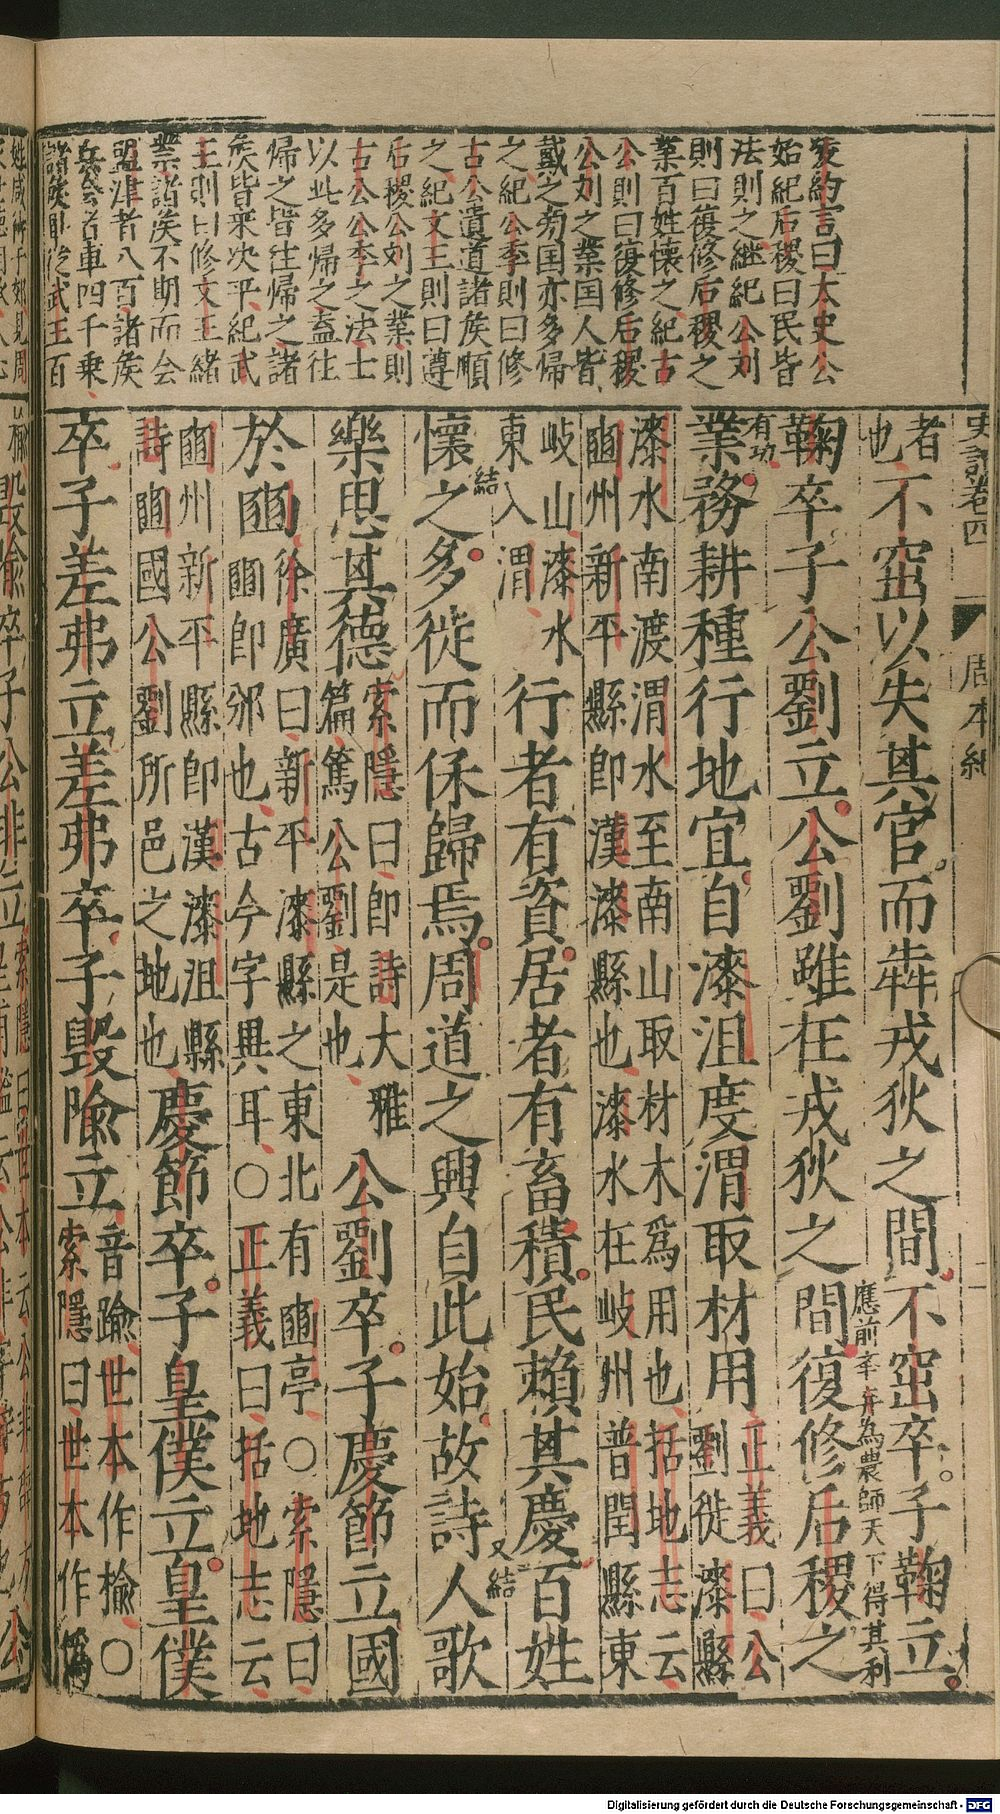 史記卷四
周本紀
二
凌約言曰太史公
始紀后稷曰民皆
法則之繼紀公刘
則曰復修后稷之
業百姓懷之紀古
公則曰復修后稷
公刘之業国人皆
戴之旁国亦多歸
之紀公季則曰修
古公遺道諸矦順
之紀文王則曰遵
后稷公刘之業則
古公公季之法士
以此多歸之盍往
歸之皆往歸之諸
矦皆来决平紀武
王則曰修文王緒
業諸矦不期而会
盟津者八百諸矦
兵会者車四千乗
諸矦
武王百
者
也
不窋以失其官而犇戎狄之間不窋卒子鞠立
應前棄為農師天下得其利
有功
鞠卒子公劉立公劉雖在戎狄之間復修后稷之
業務耕種行地宜自漆沮度渭取材用
正義曰公
劉徙漆縣
漆水南渡渭水至南山取材木爲用也括地志云
豳州新平縣即漢漆縣也漆水在岐州普閏縣東
岐山漆水
東入渭
行者有資居者有畜積民賴其慶百姓
懷之
結
多徙而保歸焉周道之興自此始故詩人歌
又結
樂思其德
索隱曰即詩大雅
篇篤公劉是也
公劉卒子慶節立國
於豳
徐廣曰新平漆縣之東北有豳亭○索隱曰
豳即邠也古今字異耳○正義曰括地志云
豳州新平縣即漢漆沮縣
詩豳國公劉所邑之地也
慶節卒子皇僕立皇僕
卒子差弗立差弗卒子毀隃立
音踰世本作揄○
索隱曰世本作僞